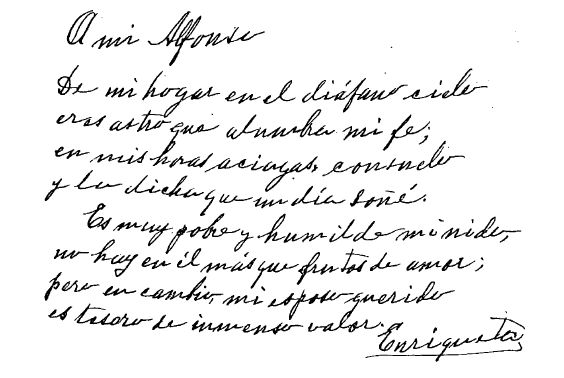 A mi Alfonso
De mi hogar en el diáfano cielo
eres astro que alumbra mi fe;
en mis horas aciagas, consuelo
y la dicha que un día soñé.
Es muy pobre y humilde mi nido,
no hay en él más que frutos de amor;
pero en cambio, mi esposo querido
es tesoro de inmenso valor.
Enriqueta